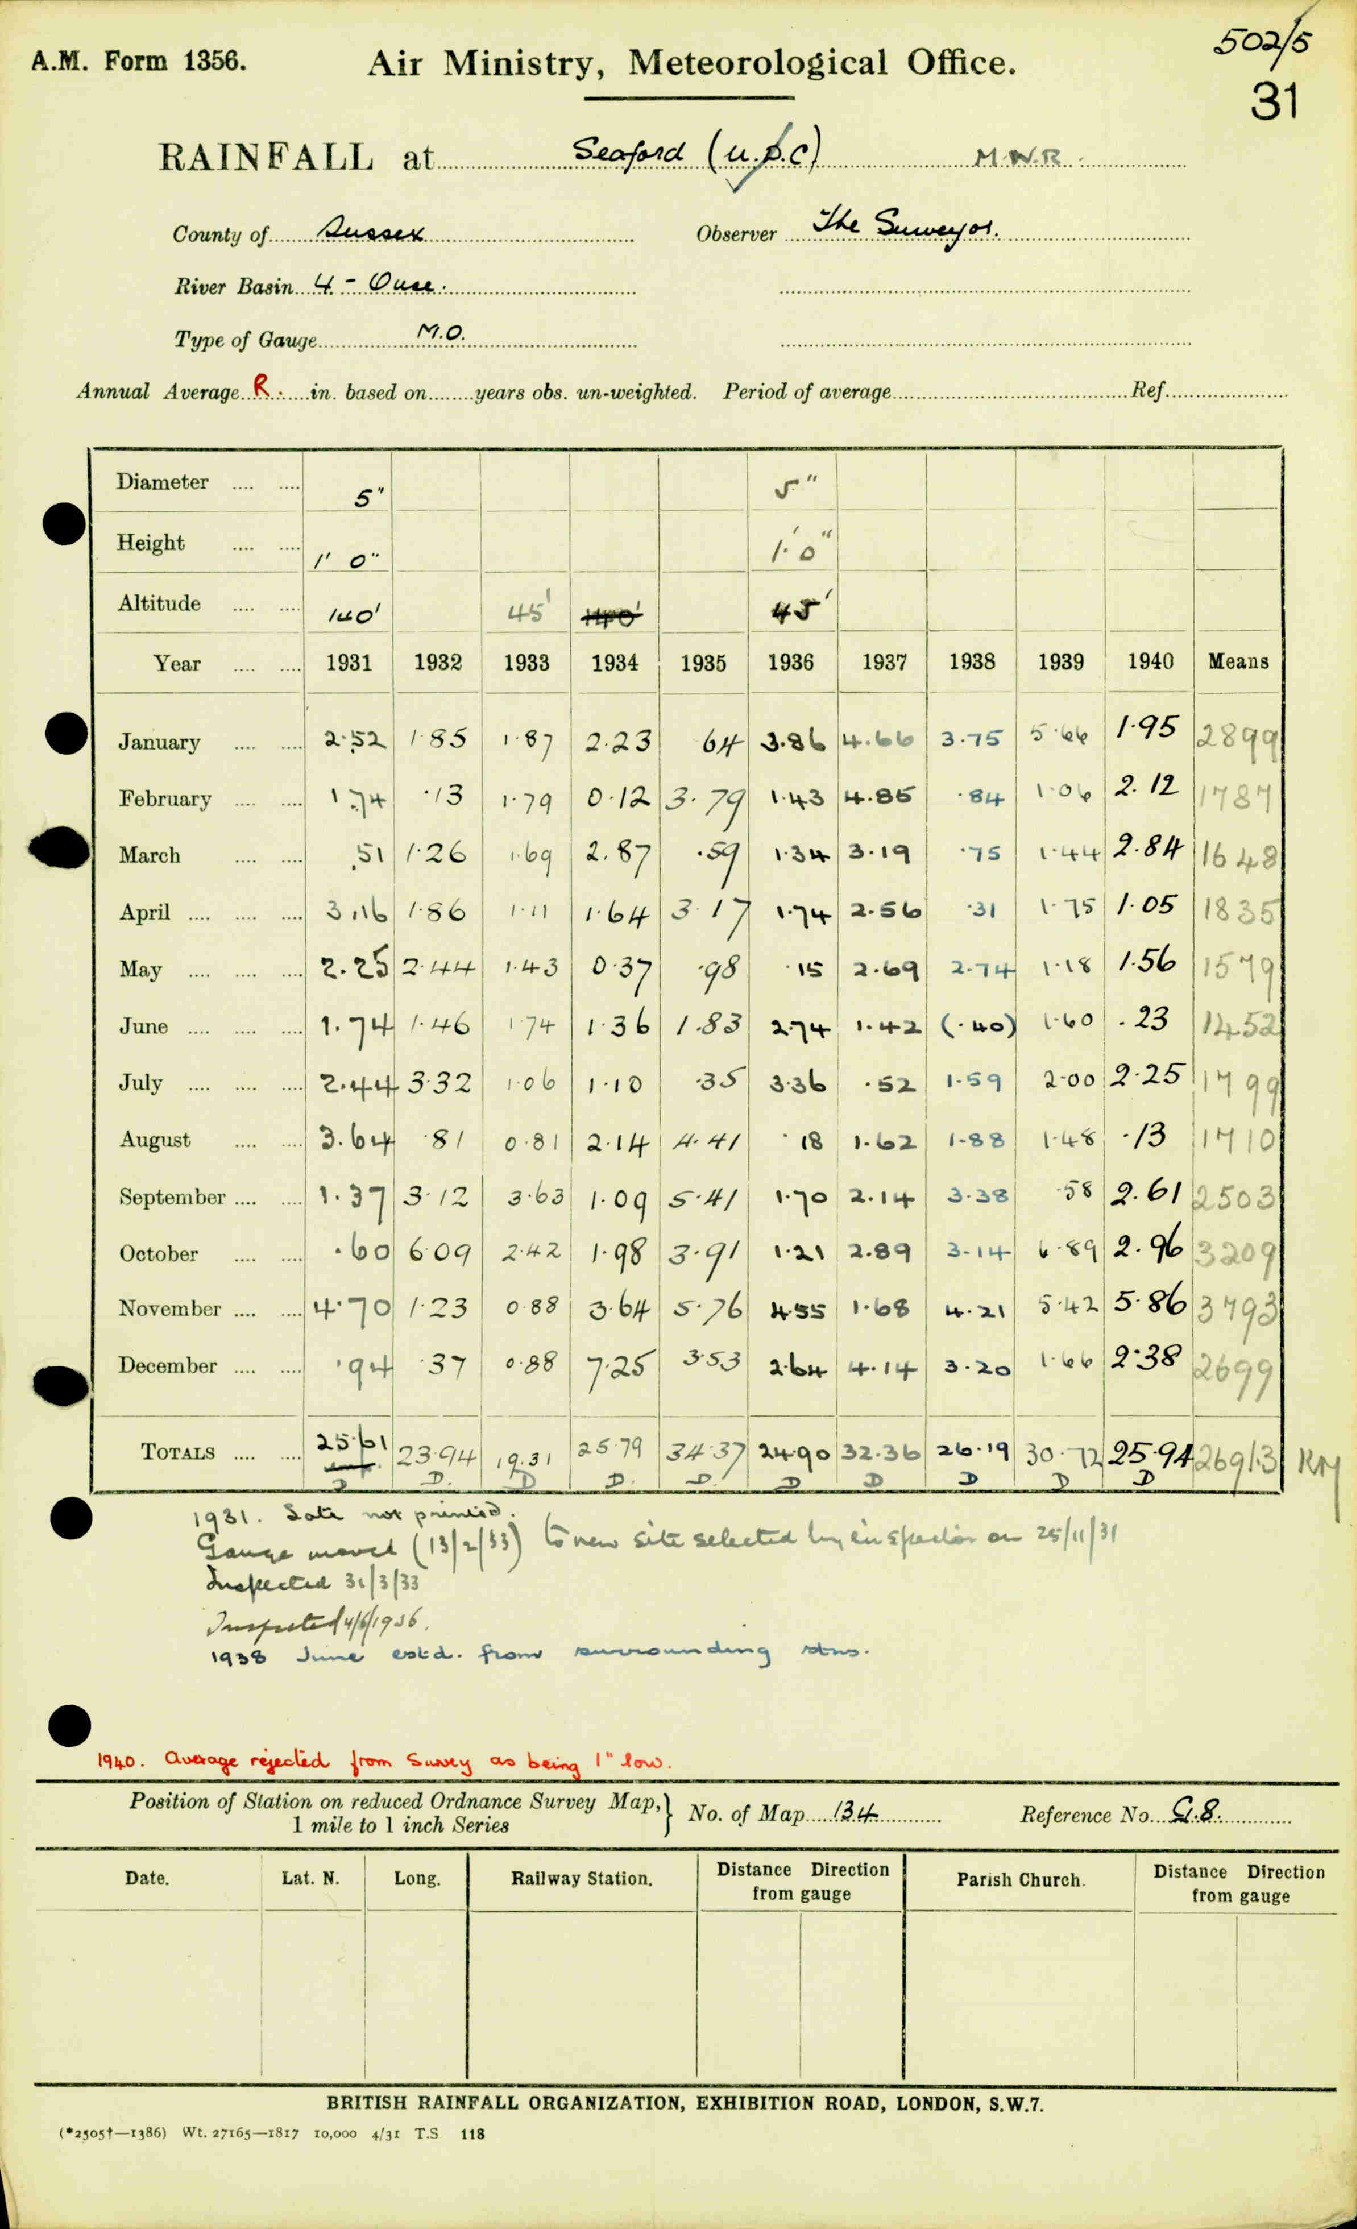 A.M. Form 1356.
Air Ministry, Meteorological Office.
502/5
31
RAINFALL at Seaford (U.D.C) M.W.R.
County of Sussex Observer The Surveyor.
River Basin 4 - Ouse.
Type of Gauge M.O.
Annual Average R. in. based on years obs. un-weighted. Period of average Ref.
Diameter 5" 5"
Height 1' 0" 1' 0"
Altitude 140' 45' 140' 45'
Year 1931 1932 1933 1934 1935 1936 1937 1938 1939 1940 Means
January 2.52 1.85 1.87 2.23 64 3.86 4.66 3.75 5.66 1.95 2899
February 1.74 .13 1.79 0.12 3.79 1.43 4.85 .84 1.06 2.12 1787
March .51 1.26 1.69 2.87 .59 1.34 3.19 .75 1.44 2.84 1648
April 3.16 1.86 1.11 1.64 3.17 1.74 2.56 .31 1.75 1.05 1835
May 2.25 2.44 1.43 0.37 .98 .15 2.69 2.74 1.18 1.56 1579
June 1.74 1.46 1.74 1.36 1.83 2.74 1.42 (.40) 1.60 .23 1452
July 2.44 3.32 1.06 1.10 .35 3.36 .52 1.59 2.00 2.25 1799
August 3.64 .81 0.81 2.14 4.41 .18 1.62 1.88 1.48 .13 1710
September 1.37 3.12 3.63 1.09 5.41 1.70 2.14 3.38 .58 2.61 2503
October .60 6.09 2.42 1.98 3.91 1.21 2.89 3.14 6.89 2.96 3209
November 4.70 1.23 0.88 3.64 5.76 4.55 1.68 4.21 5.42 5.86 3793
December .94 .37 0.88 7.25 3.53 2.64 4.14 3.20 1.66 2.38 2699
TOTALS 25.61 23.94 19.31 25.79 34.37 24.90 32.36 26.19 30.72 25.94 26913 KM
D D D D D D D D D D
1931. Data not printed.
Gauge moved (13/2/33) to new site selected by inspector on 25/11/31
Inspected 31/3/33
Inspected 4/6/1936.
1938 June estd. from surrounding stns.
1940. Average rejected from Survey as being 1" low.
Position of Station on reduced Ordnance Survey Map,
1 mile to 1 inch Series
No. of Map 134 Reference No. G.8.
Date. Lat. N. Long. Railway Station. Distance Direction from gauge Parish Church. Distance Direction from gauge
BRITISH RAINFALL ORGANIZATION, EXHIBITION ROAD, LONDON, S.W.7.
(*2505†—1386) Wt. 27165—1817 10,000 4/31 T.S 118